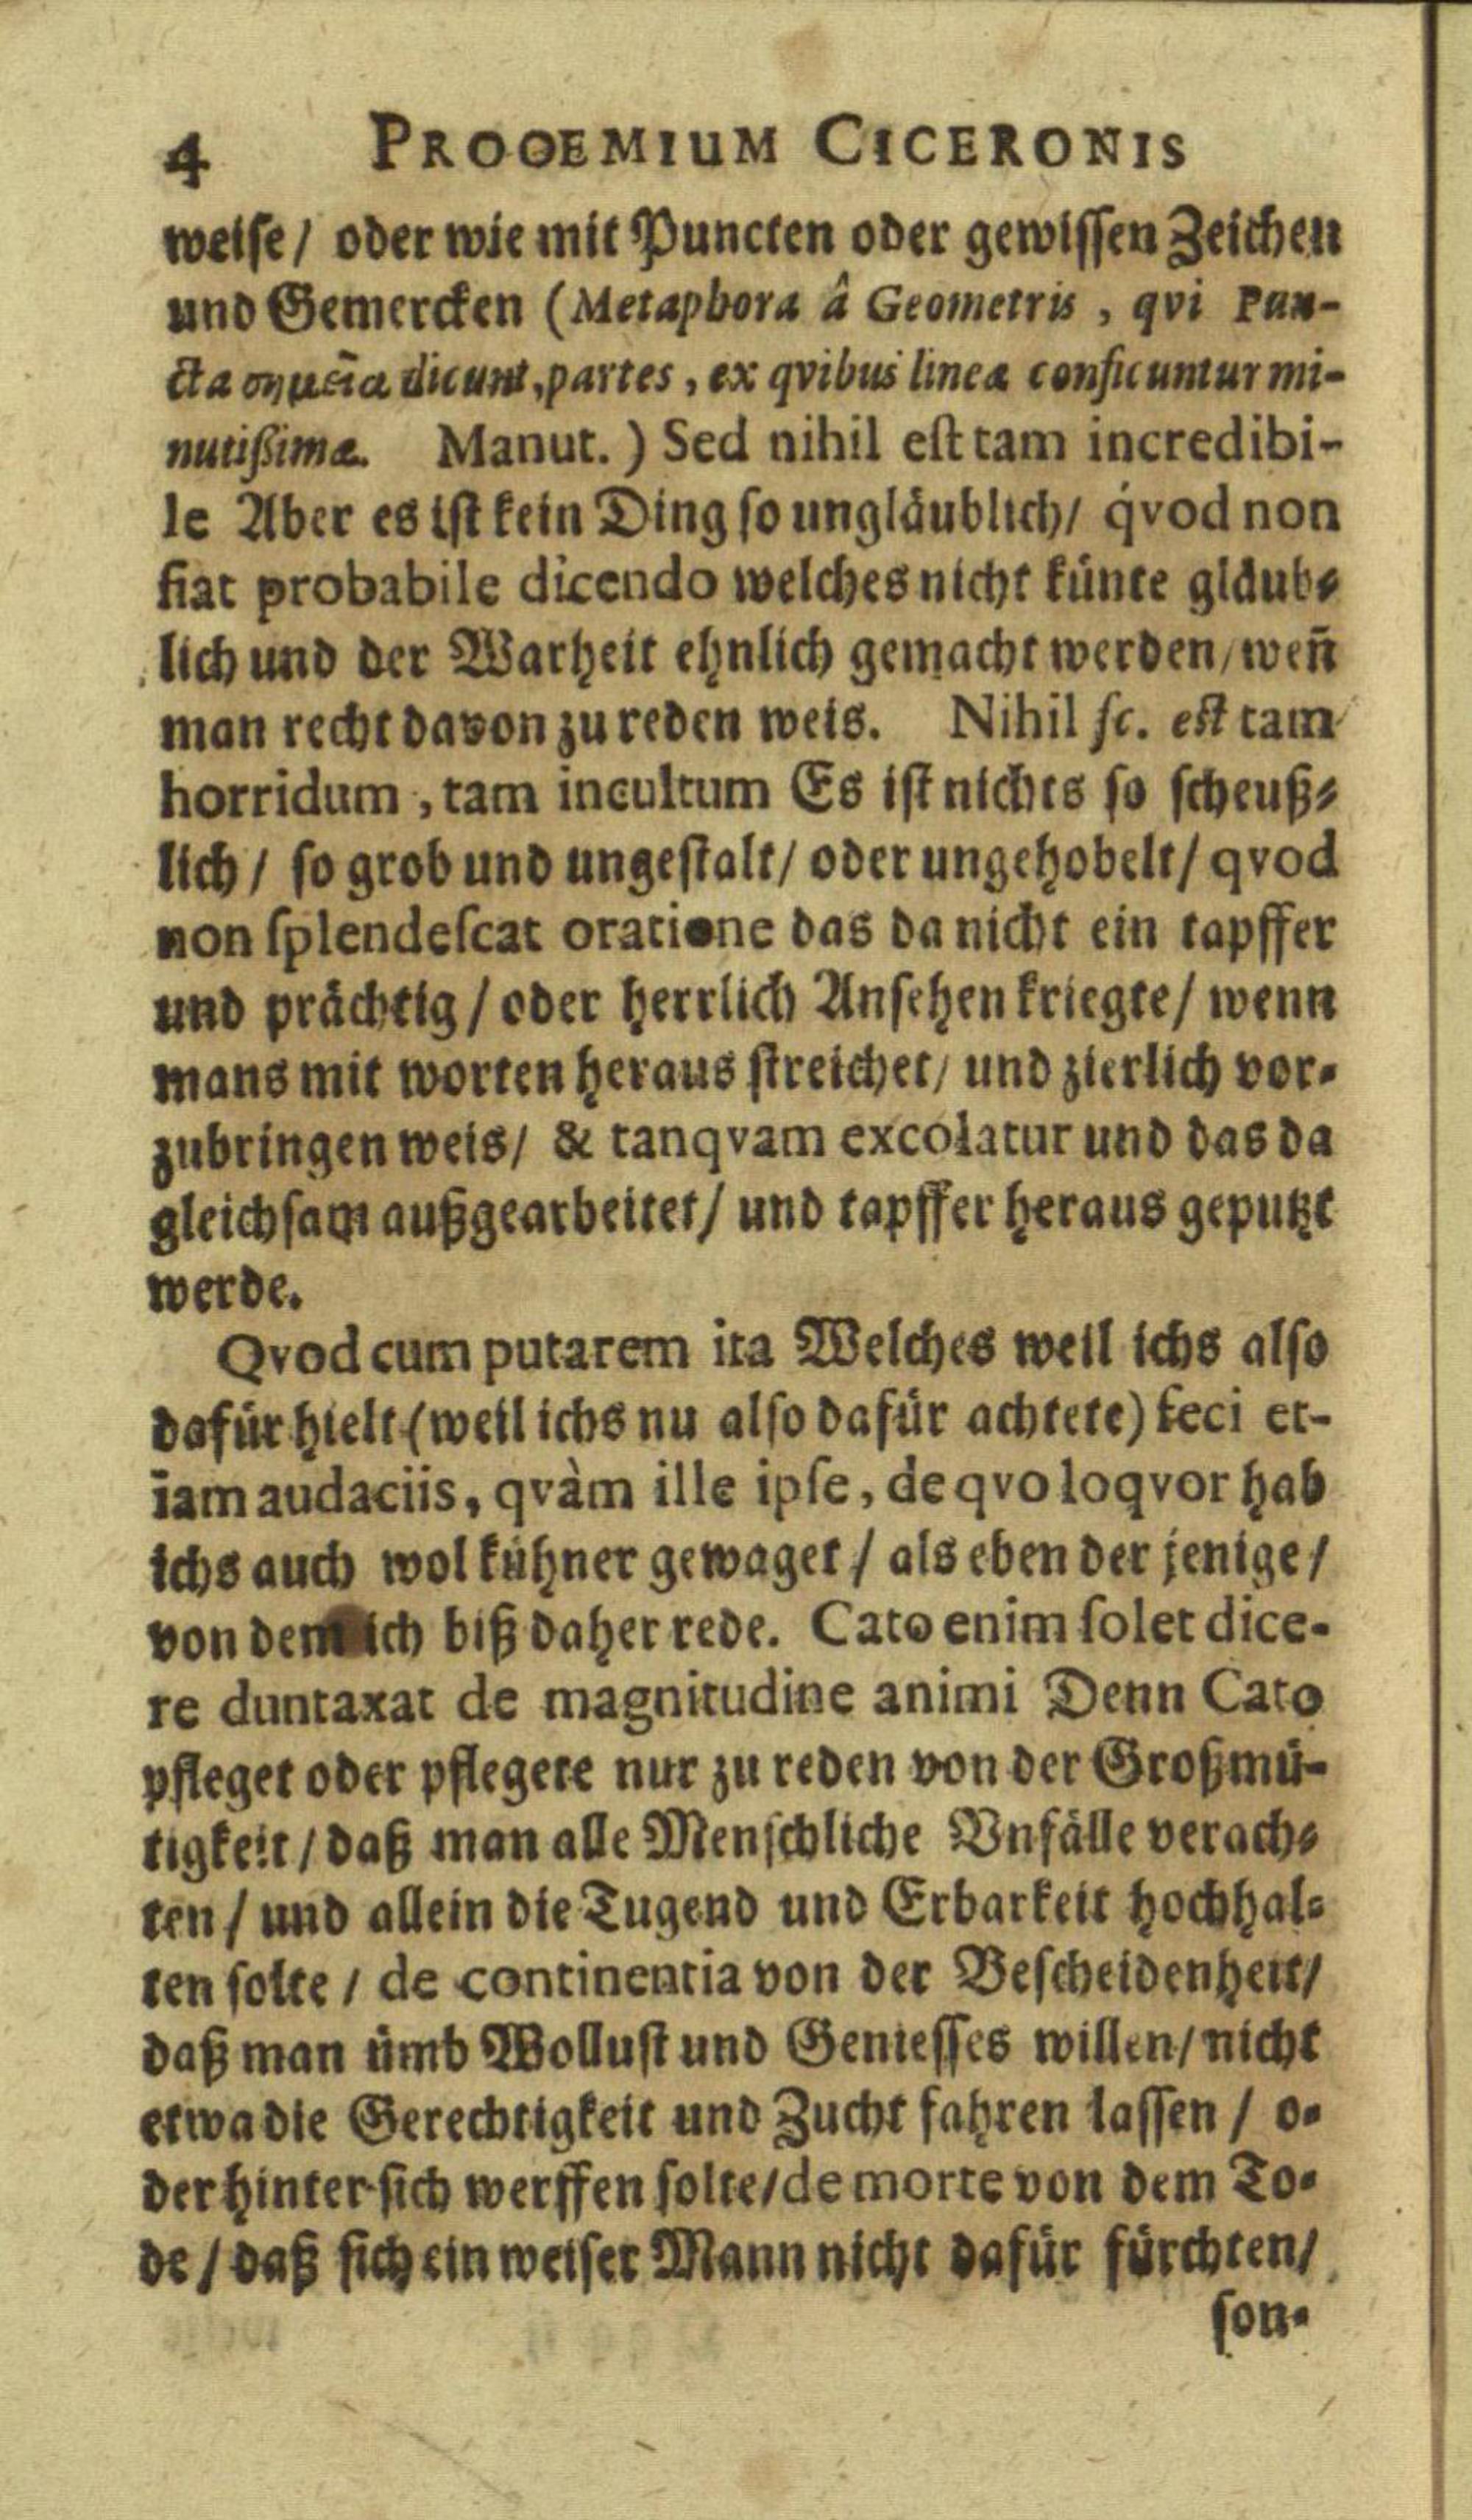 4 PROOEMIUM CICERONIS
weise/ oder wie mit Puncten oder gewissen Zeichen
und Gemercken (Metaphora â Geometris, qvi Pun-
cta σημεῖα dicunt, partes, ex qvibus lineæ conficiuntur mi-
nutißimæ. Manut.) Sed nihil est tam incredibi-
le Aber es ist kein Ding so ungläublich/ qvod non
fiat probabile dicendo welches nicht künte gläub-
lich und der Warheit ehnlich gemacht werden/ weñ
man recht davon zu reden weis. Nihil sc. est tam
horridum, tam incultum Es ist nichts so scheuß-
lich/ so grob und ungestalt/ oder ungehobelt/ qvod
non splendescat oratione das da nicht ein tapffer
und prächtig/ oder herrlich Ansehen kriegte/ wenn
mans mit worten heraus streichet/ und zierlich vor-
zubringen weis/ & tanqvam excolatur und das da
gleichsam außgearbeitet/ und tapffer heraus geputzt
werde.
Qvod cum putarem ita Welches weil ichs also
dafür hielt (weil ichs nu also dafür achtete) feci et-
iam audaciis, qvàm ille ipse, de qvo loqvor hab
ichs auch wol kühner gewaget/ als eben der jenige/
von dem ich biß daher rede. Cato enim solet dice-
re duntaxat de magnitudine animi Denn Cato
pfleget oder pflegete nur zu reden von der Großmü-
tigkeit/ daß man alle Menschliche Vnfälle verach-
ten/ und allein die Tugend und Erbarkeit hochhal-
ten solte/ de continentia von der Bescheidenheit/
daß man ümb Wollust und Geniesses willen/ nicht
etwa die Gerechtigkeit und Zucht fahren lassen/ o-
der hinter sich werffen solte/ de morte von dem To-
de/ daß sich ein weiser Mann nicht dafür fürchten/
son-